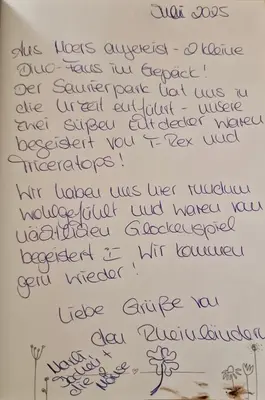 Juli 2025
Aus Moers angereist - 2 kleine
Dino-Fans im Gepäck!
Der Saurierpark hat uns in
die Urzeit entführt - unsere
zwei süßen Entdecker waren
begeistert von T-Rex und
Triceratops!
Wir haben uns hier rundum
wohlgefühlt und waren vom
nächtlichen Glockenspiel
begeistert :) Wir kommen
gern wieder!
Liebe Grüße von
den Rheinländern
+
die 2